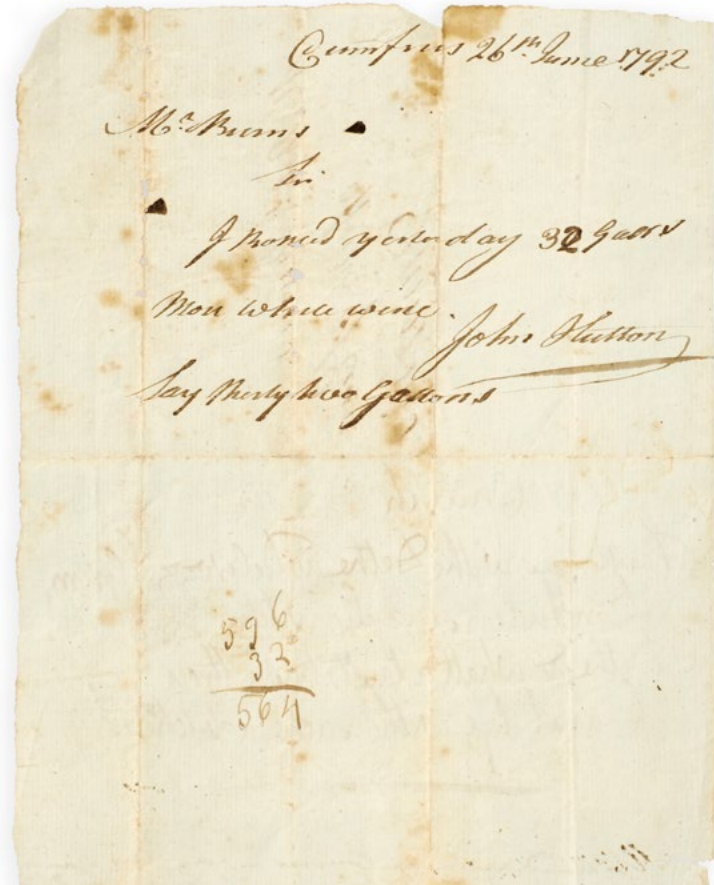 Dumfries 26th June 1792
Mr. Burns
Sir
I Rained yesterday 32 Gallrs
More white wine.
John Hutton
Say thirty two Gallons
596
32
564